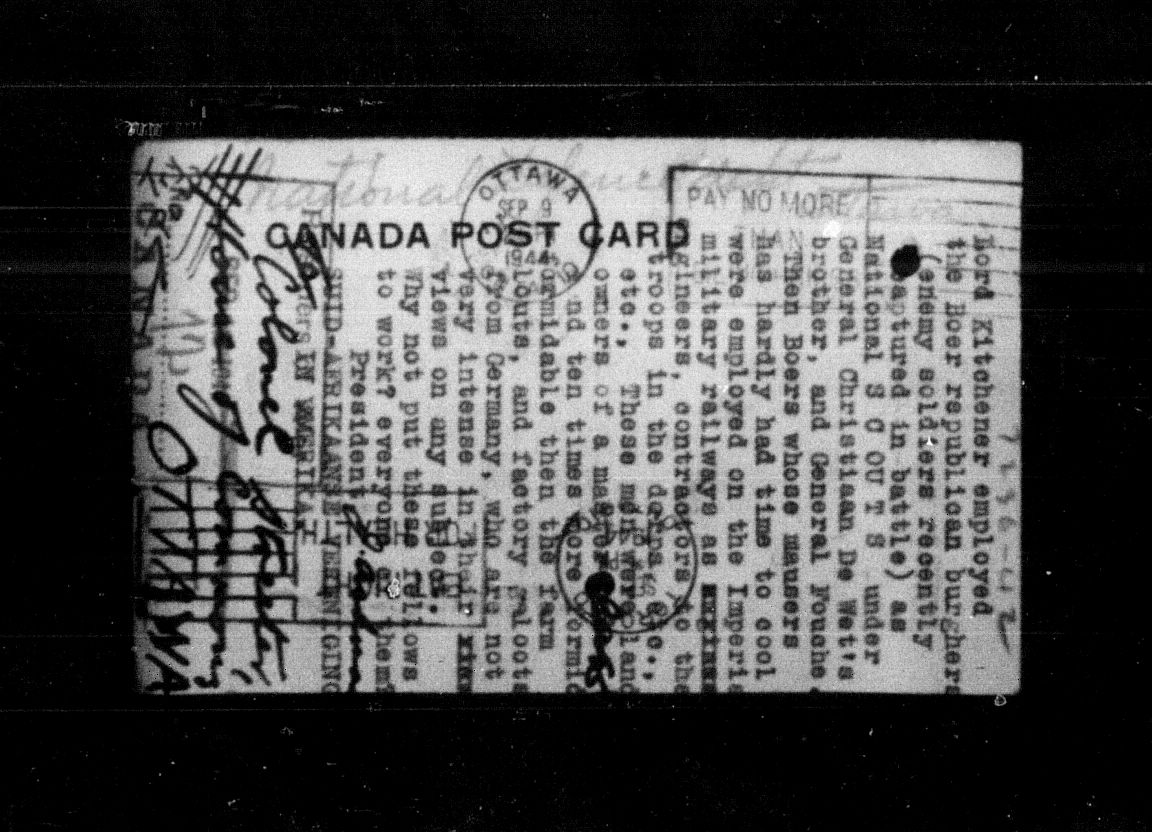 CANADA POST CARD
OTTAWA
SEP 9
PAY NO MORE
Lord Kitchener employed
the Boer republican burghers
(enemy soldiers recently
captured in battle) as
National S C OU T S under
General Christiaan De Wet's
brother, and General Fouche.
Then Boers whose mausers
has hardly had time to cool
were employed on the Imperia
military railways as
gineers, contractors to the
troops in the dorps etc.,
etc., These men were land
owners of a
nd ten times more formid
formidable then the farm
louts, and factory galoots
from Germany, who are not
very intense in their
views on any subject.
Why not put these fellows
to work? everyone of them!
President
SUID-AFRIKAANSE VEREENIGING
IN AMERIKA
To Colonel Streeter
The Honourary Company
CANADA
OTTAWA